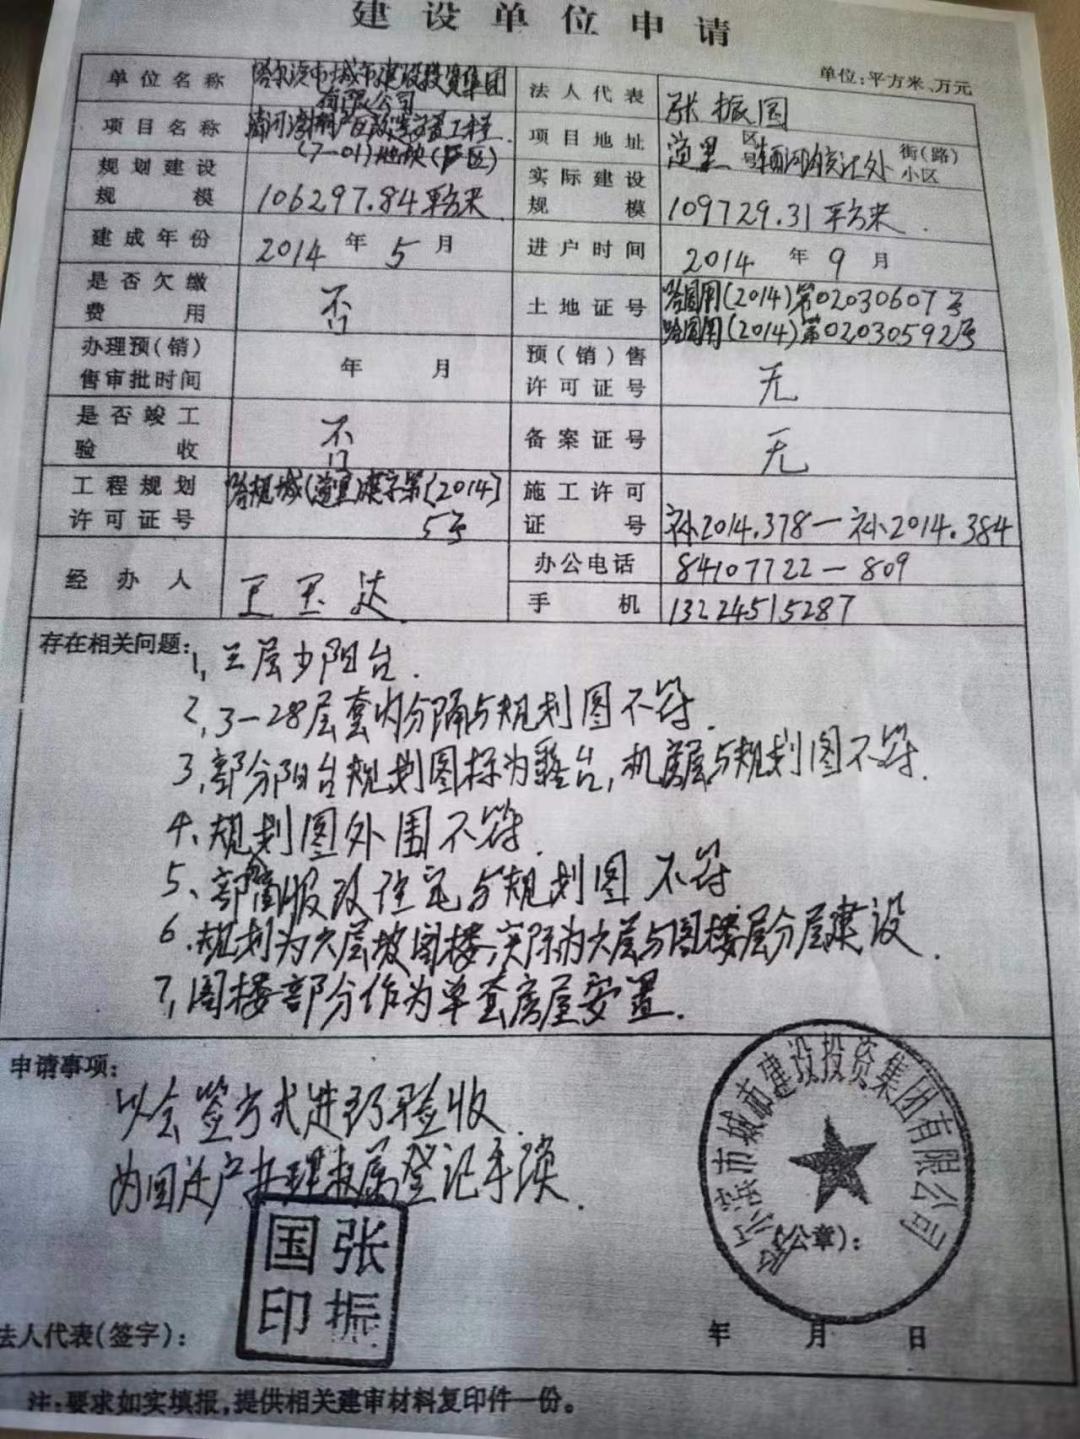 建设单位申请
单位:平方米、万元
单位名称 哈尔滨市城市建设投资集团有限公司 法人代表 张振国
项目名称 棚户区改造安置工程(7-01)地块(E区) 项目地址 道里 区 号 街(路) 小区
规划建设规模 106297.84平方米 实际建设规模 109729.31平方米.
建成年份 2014年5月 进户时间 2014年9月
是否欠缴费用 否 土地证号 哈国用(2014)第02030607号
哈国用(2014)第02030592号
办理预(销)售审批时间 年 月 预(销)售许可证号 无
是否竣工验收 否 备案证号 无
工程规划许可证号 哈规城(道里)建字第[2014]5号 施工许可证号 补2014.378—补2014.384
经办人 王玉达 办公电话 84107722—809
手机 13224515287
存在相关问题:
1,三层少阳台.
2,3-28层套内分隔与规划图不符.
3,部分阳台规划图标为露台,机房层与规划图不符.
4、规划图外围不符.
5、部分商服改住宅与规划图不符
6.规划为六层坡阁楼,实际为六层与阁楼层分层建设.
7,阁楼部分作为单套房屋安置.
申请事项:
以会签方式进行验收
为回迁户办理权属登记手续.
哈尔滨市城市建设投资集团有限公司
(公章):
张振国印
法人代表(签字):
年 月 日
注:要求如实填报,提供相关建审材料复印件一份。